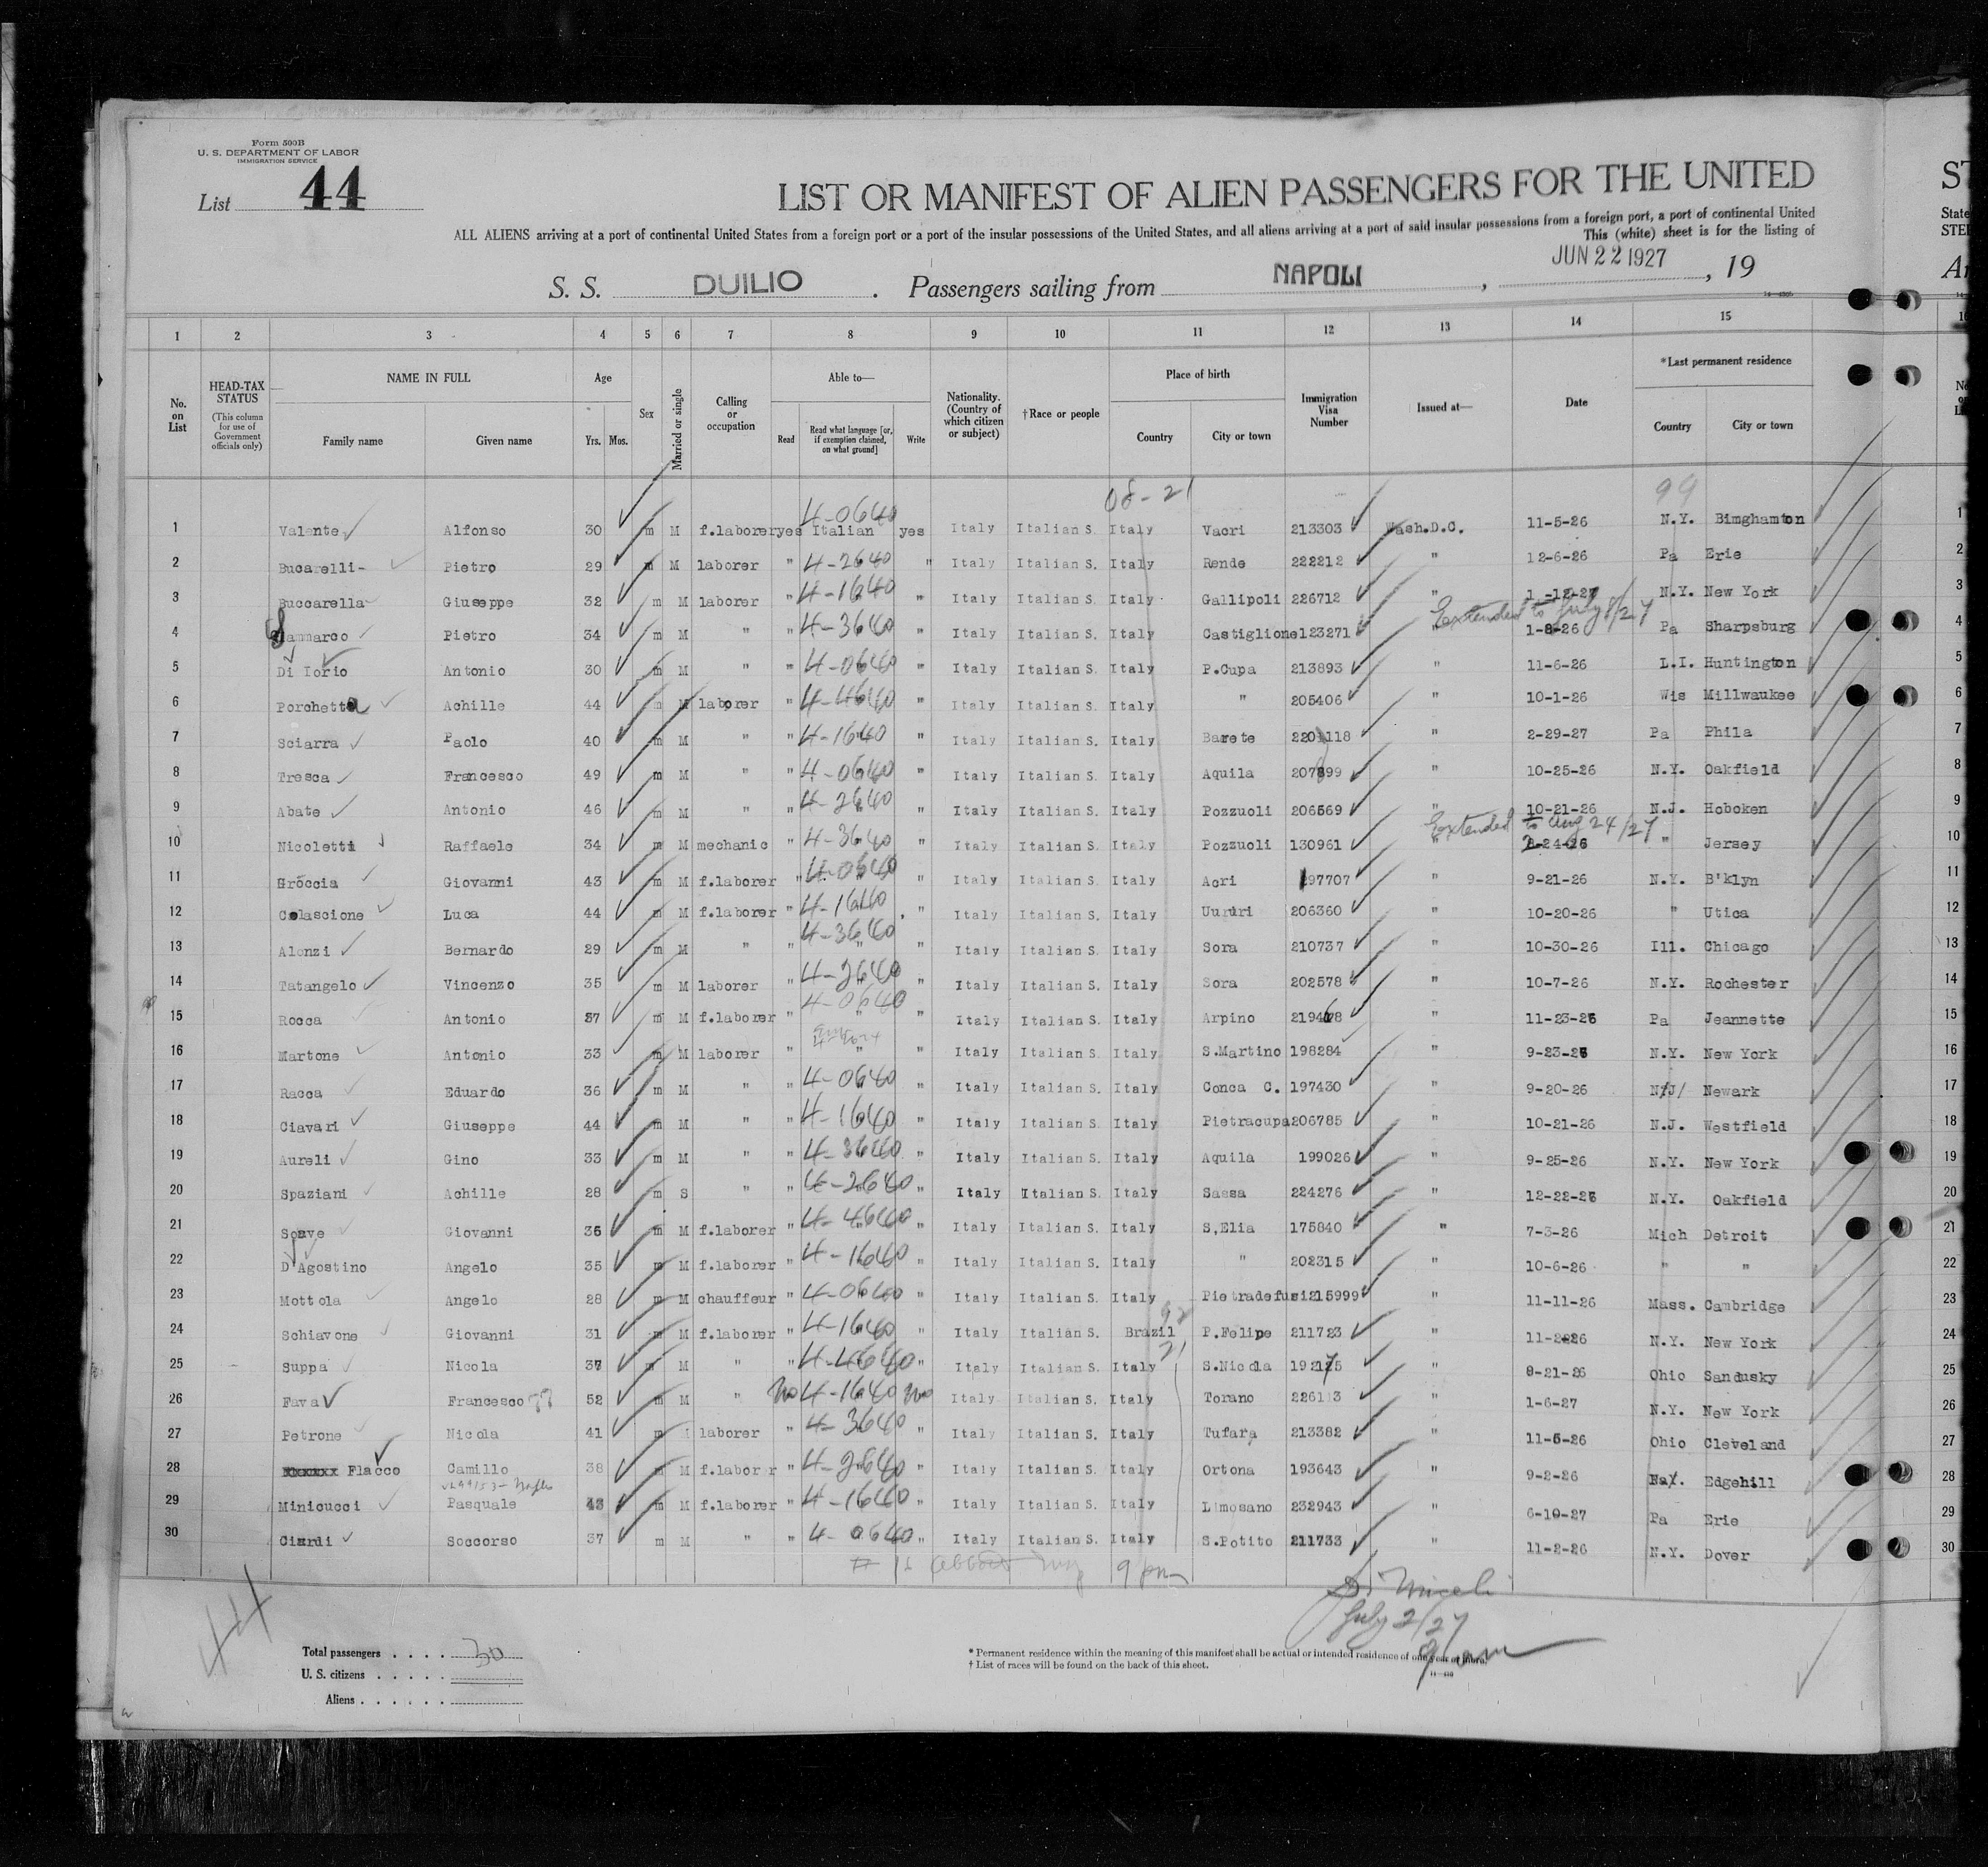 Form 500B
U. S. DEPARTMENT OF LABOR
IMMIGRATION SERVICE
List 44
LIST OR MANIFEST OF ALIEN PASSENGERS FOR THE UNITED
ALL ALIENS arriving at a port of continental United States from a foreign port or a port of the insular possessions of the United States, and all aliens arriving at a port of said insular possessions from a foreign port, a port of continental United
This (white) sheet is for the listing of
S. S. DUILIO . Passengers sailing from NAPOLI , JUN 22 1927 , 19
1 2 3 4 5 6 7 8 9 10 11 12 13 14 15
No. on List HEAD-TAX STATUS (This column for use of Government officials only) NAME IN FULL Family name Given name Age Yrs. Mos. Sex Married or single Calling or occupation Able to— Read Read what language [or, if exemption claimed, on what ground] Write Nationality. (Country of which citizen or subject) †Race or people Place of birth Country City or town Immigration Visa Number Issued at— Date *Last permanent residence Country City or town
08-21 99
1 Valente Alfonso 30 m M f.laborer yes Italian 4-0640 yes Italy Italian S. Italy Vacri 213303 Wash.D.C. 11-5-26 N.Y. Bimghamton 1
2 Bucarelli- Pietro 29 m M laborer " 4-2640 " Italy Italian S. Italy Rende 222212 " 12-6-26 Pa Erie 2
3 Buccarella Giuseppe 32 m M laborer " 4-1640 " Italy Italian S. Italy Gallipoli 226712 " 1-12-27 N.Y. New York 3
Extended to July 8/27
4 Pietro 34 m M " " 4-3640 " Italy Italian S. Italy Castiglione 123271 1-8-26 Pa Sharpsburg 4
5 Di Iorio Antonio 30 m M " " 4-0640 " Italy Italian S. Italy P.Cupa 213893 " 11-6-26 L.I. Huntington 5
6 Porchetta Achille 44 m M laborer " 4-4640 " Italy Italian S. Italy " 205406 " 10-1-26 Wis Millwaukee 6
7 Sciarra Paolo 40 m M " " 4-1640 " Italy Italian S. Italy Barete " 2-29-27 Pa Phila 7
8 Tresca Francesco 49 m M " " 4-0640 " Italy Italian S. Italy Aquila 207899 " 10-25-26 N.Y. Oakfield 8
9 Abate Antonio 46 m M " " 4-2640 " Italy Italian S. Italy Pozzuoli 206569 " 10-21-26 N.J. Hoboken 9
Extended to Aug 24/27
10 Nicoletti Raffaele 34 m M mechanic " 4-3640 " Italy Italian S. Italy Pozzuoli 130961 " -24-26 " Jersey 10
11 Groccia Giovanni 43 m M f.laborer " 4-0640 " Italy Italian S. Italy Acri 197707 " 9-21-26 N.Y. B'klyn 11
12 Colascione Luca 44 m M f.laborer " 4-1640 " Italy Italian S. Italy Ururi 206360 " 10-20-26 " Utica 12
13 Alonzi Bernardo 29 m M " " 4-3640 " Italy Italian S. Italy Sora 210737 " 10-30-26 Ill. Chicago 13
14 Tatangelo Vincenzo 35 m M laborer " 4-2640 " Italy Italian S. Italy Sora 202578 " 10-7-26 N.Y. Rochester 14
15 Rocca Antonio 37 m M f.laborer " 4-0640 " Italy Italian S. Italy Arpino " 11-23-26 Pa Jeannette 15
16 Martone Antonio 33 m M laborer " " " Italy Italian S. Italy S.Martino 198284 " 9-23-26 N.Y. New York 16
17 Racca Eduardo 36 m M " " 4-0640 " Italy Italian S. Italy Conca C. 197430 " 9-20-26 N/J/ Newark 17
18 Ciavari Giuseppe 44 m M " " 4-1640 " Italy Italian S. Italy Pietracupa 206785 " 10-21-26 N.J. Westfield 18
19 Aureli Gino 33 m M " " 4-3640 " Italy Italian S. Italy Aquila 199026 " 9-25-26 N.Y. New York 19
20 Spaziani Achille 28 m S " " 4-2640 " Italy Italian S. Italy Sassa 224276 " 12-22-26 N.Y. Oakfield 20
21 Soave Giovanni 36 m M f.laborer " 4-4640 " Italy Italian S. Italy S,Elia 175840 " 7-3-26 Mich Detroit 21
22 D'Agostino Angelo 35 m M f.laborer " 4-1640 " Italy Italian S. Italy " 202315 " 10-6-26 " " 22
23 Mottola Angelo 28 m M chauffeur " 4-0640 " Italy Italian S. Italy Pietradefusi 215999 " 11-11-26 Mass. Cambridge 23
24 Schiavone Giovanni 31 m M f.laborer " 4-1640 " Italy Italian S. Brazil P.Felipe 211723 " 11-2-26 N.Y. New York 24
25 Suppa Nicola 37 m M " " 4-4640 " Italy Italian S. Italy 21 S.Nicola " 8-21-26 Ohio Sandusky 25
26 Fava Francesco 52 m M " no 4-1640 no Italy Italian S. Italy Torano " 1-6-27 N.Y. New York 26
27 Petrone Nicola 41 m laborer " 4-3640 " Italy Italian S. Italy Tufara 213382 " 11-5-26 Ohio Cleveland 27
28 Flacco Camillo 38 m M f.labor r " 4-2640 " Italy Italian S. Italy Ortona 193643 " 9-2-26 Edgehill 28
29 Minicucci Pasquale 43 m M f.laborer " 4-1640 " Italy Italian S. Italy Limosano 232943 " 6-10-27 Pa Erie 29
30 Ciardi Soccorso 37 m M " " 4-0640 " Italy Italian S. Italy S.Potito 211733 " 11-2-26 N.Y. Dover 30
9 pm
July 2/27
9 am
44
Total passengers . . . . 30
U. S. citizens . . . . .
Aliens . . . . . .
* Permanent residence within the meaning of this manifest shall be actual or intended residence of one year or more.
† List of races will be found on the back of this sheet.